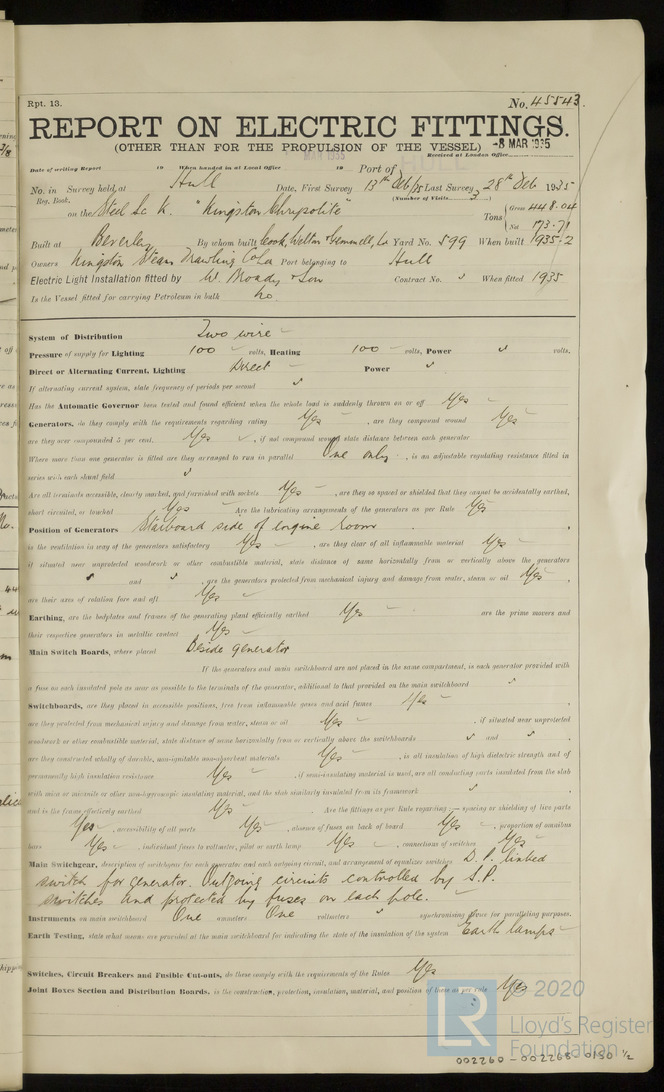 Rpt. 13.
No. 45543
REPORT ON ELECTRIC FITTINGS.
(OTHER THAN FOR THE PROPULSION OF THE VESSEL) -8 MAR 1935
Date of writing Report 19 When handed in at Local Office 19 Port of Received at London Office
No. in Survey held at Hull Date, First Survey 13th Feb/35 Last Survey 28th Feb 1935
Reg. Book. (Number of Visits 3)
on the Steel Sc K. "Kingston Chrysolite" Tons Gross 448.04
Net 173.71
Built at Beverley By whom built Cook, Welton & Gemmell, Ld Yard No. 599 When built 1935-2
Owners Kingston Steam Trawling Co Ld Port belonging to Hull
Electric Light Installation fitted by W. Moody & Son Contract No. When fitted 1935
Is the Vessel fitted for carrying Petroleum in bulk no
System of Distribution Two wire
Pressure of supply for Lighting 100 volts, Heating 100 volts, Power volts.
Direct or Alternating Current, Lighting Direct Power
If alternating current system, state frequency of periods per second
Has the Automatic Governor been tested and found efficient when the whole load is suddenly thrown on or off Yes
Generators, do they comply with the requirements regarding rating Yes, are they compound wound Yes
are they over compounded 5 per cent. Yes, if not compound wound state distance between each generator
Where more than one generator is fitted are they arranged to run in parallel One only, is an adjustable regulating resistance fitted in
series with each shunt field
Are all terminals accessible, clearly marked, and furnished with sockets Yes, are they so spaced or shielded that they cannot be accidentally earthed,
short circuited, or touched Yes Are the lubricating arrangements of the generators as per Rule Yes
Position of Generators Starboard side of Engine Room
is the ventilation in way of the generators satisfactory Yes, are they clear of all inflammable material Yes
if situated near unprotected woodwork or other combustible material, state distance of same horizontally from or vertically above the generators
and, are the generators protected from mechanical injury and damage from water, steam or oil Yes,
are their axes of rotation fore and aft Yes
Earthing, are the bedplates and frames of the generating plant efficiently earthed Yes are the prime movers and
their respective generators in metallic contact Yes
Main Switch Boards, where placed Beside generator
If the generators and main switchboard are not placed in the same compartment, is each generator provided with
a fuse on each insulated pole as near as possible to the terminals of the generator, additional to that provided on the main switchboard
Switchboards, are they placed in accessible positions, free from inflammable gases and acid fumes Yes,
are they protected from mechanical injury and damage from water, steam or oil Yes, if situated near unprotected
woodwork or other combustible material, state distance of same horizontally from or vertically above the switchboards and,
are they constructed wholly of durable, non-ignitable non-absorbent materials Yes, is all insulation of high dielectric strength and of
permanently high insulation resistance Yes, if semi-insulating material is used, are all conducting parts insulated from the slab
with mica or micanite or other non-hygroscopic insulating material, and the slab similarly insulated from its framework,
and is the frame effectively earthed Yes Are the fittings as per Rule regarding:— spacing or shielding of live parts
Yes, accessibility of all parts Yes, absence of fuses on back of board Yes, proportion of omnibus
bars Yes, individual fuses to voltmeter, pilot or earth lamp Yes, connections of switches Yes
Main Switchgear, description of switchgear for each generator and each outgoing circuit, and arrangement of equalizer switches D. P. linked
switch for generator. Outgoing circuits controlled by S.P.
switches and protected by fuses on each pole.
Instruments on main switchboard One ammeters One voltmeters synchronising device for paralleling purposes.
Earth Testing, state what means are provided at the main switchboard for indicating the state of the insulation of the system Earth lamps
Switches, Circuit Breakers and Fusible Cut-outs, do these comply with the requirements of the Rules Yes
Joint Boxes Section and Distribution Boards, is the construction, protection, insulation, material, and position of these as per rule Yes
LR © 2020
Lloyd's Register
Foundation
002260-002268-0150 1/2